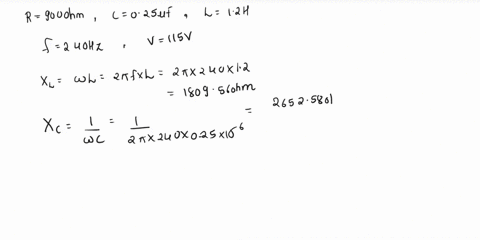 R = 900ohm, C = 0.25uf, L = 1.2H
f = 240Hz, V = 115V
XL = ωL = 2πf×L = 2π×240×1.2
= 1809.56ohm
XC = 1/ωC = 1/2π×240×0.25×10^-6 = 2652.5801